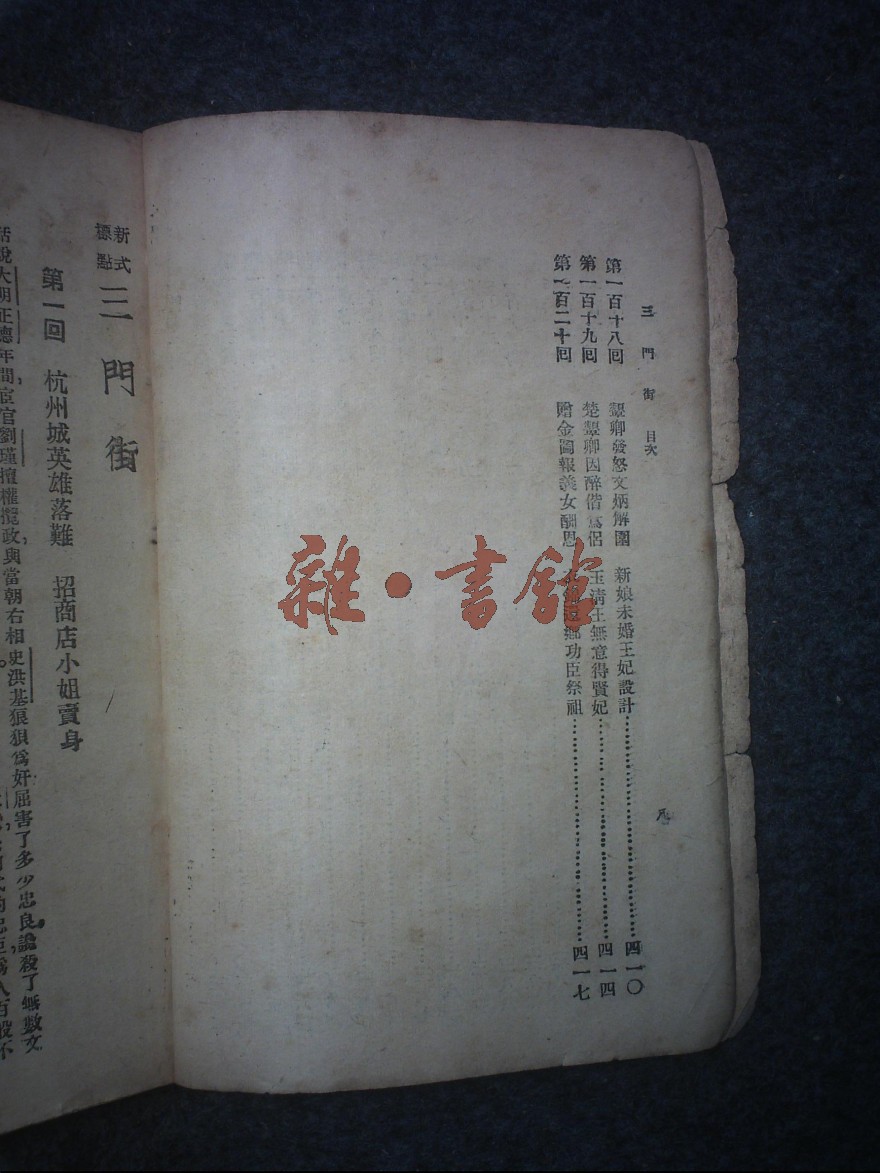 三門街 目次
第一百十八回 翠卿發怒文炳解圍 新娘未婚王妃設計 四一〇
第一百十九回 楚翠卿因醉偕鴛侶 玉清王無意得賢妃 四一四
第一百二十回 贈金圖報義女酬恩 功臣祭祖 四一七
八
雜·書館
新式標點 三門街
第一回 杭州城英雄落難 招商店小姐賣身
話說大明正德年間,宦官劉瑾擅權攬政,與當朝右相史洪基狼狽爲奸,屈害了多少忠良,讒殺了無數文